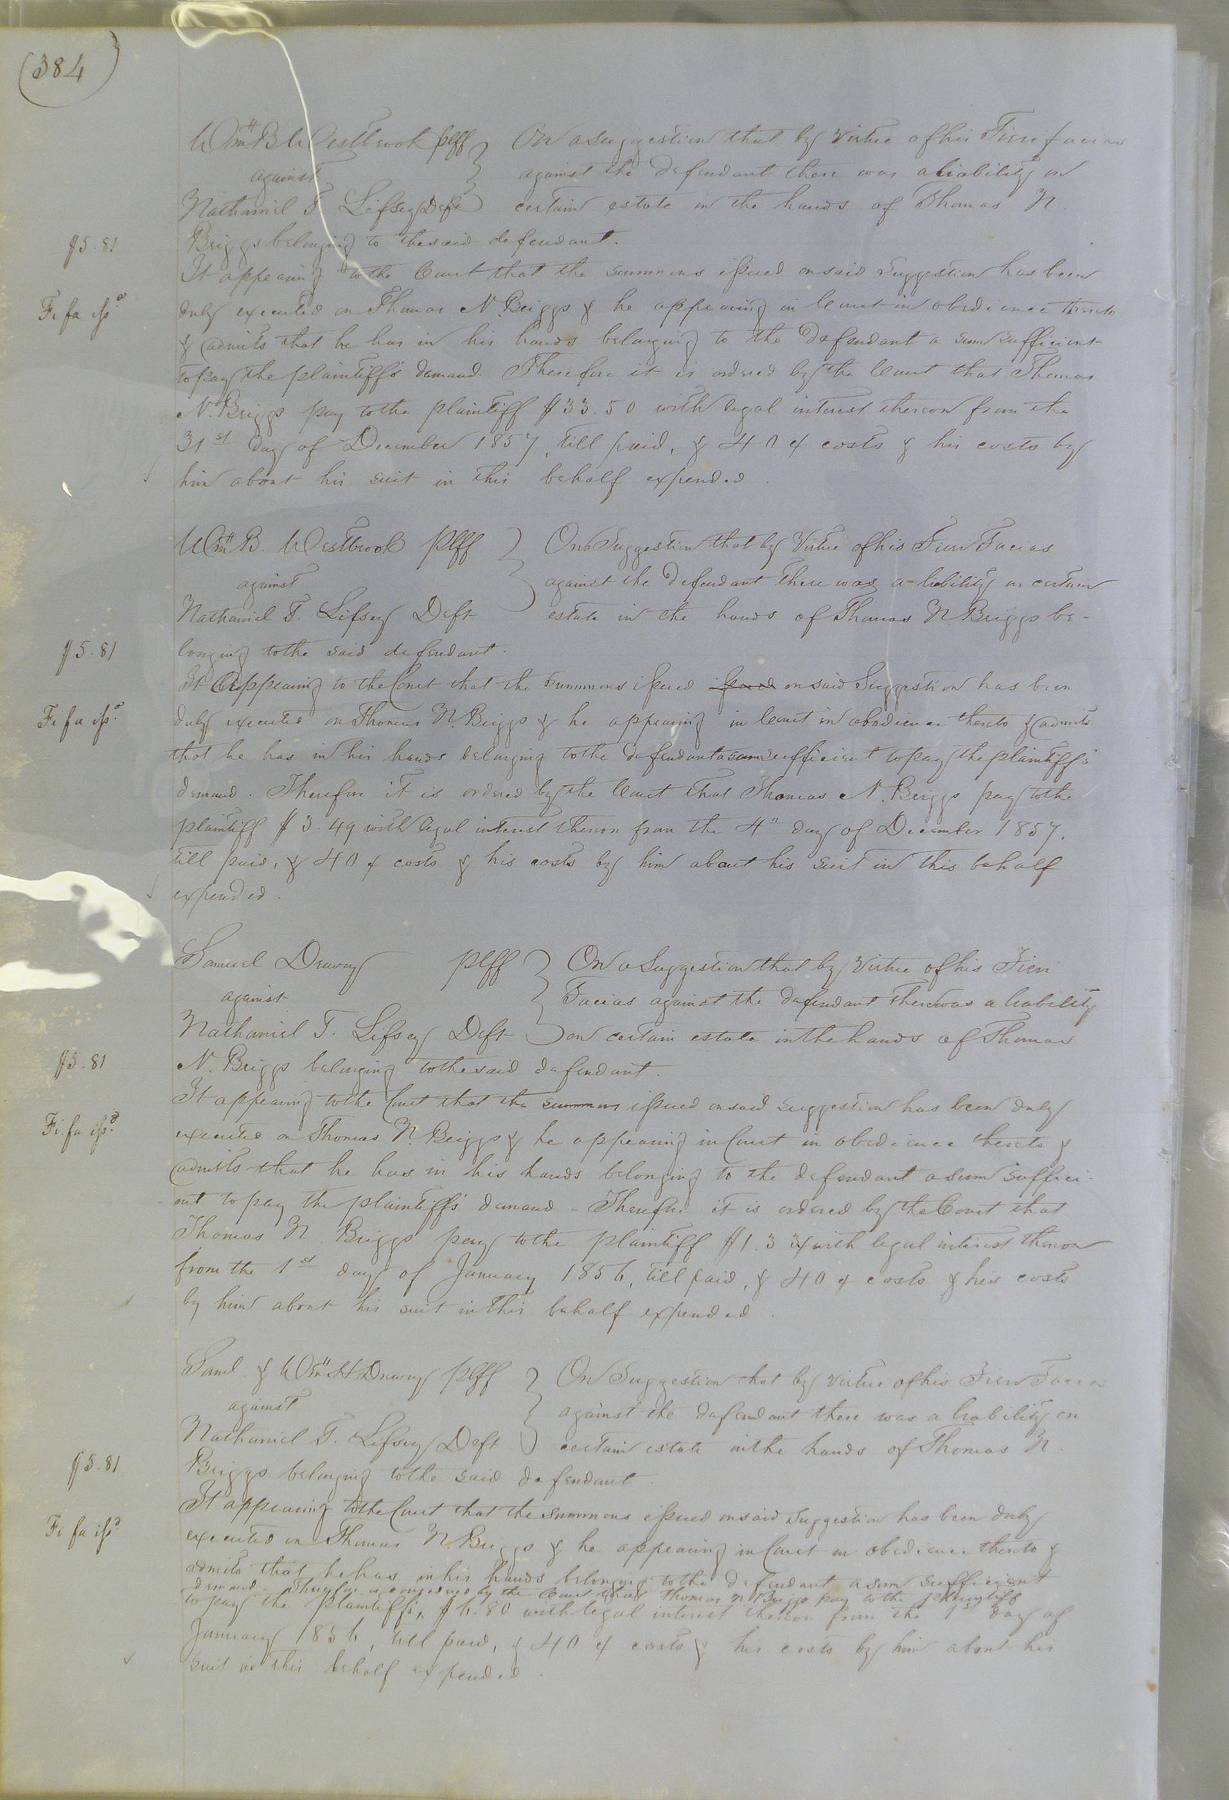 (384)
Wm B Westbrook plff } On a suggestion that by Virtue of his Fieri facias
against } against the defendant there was a liability on
Nathaniel T. Lifsey Deft } certain estate in the hands of Thomas N.
$5.81 Briggs belonging to the said defendant.
It appearing to the Court that the summons issued on said Suggestion has been
Fi fa issd duly executed on Thomas N. Briggs & he appearing in Court in obedience thereto
& admits that he has in his hands belonging to the defendant a sum sufficient
to pay the plaintiff's demand. Therefore it is ordered by the Court that Thomas
N. Briggs pay to the plaintiff $33.50 with legal interest thereon from the
31st day of December 1857, till paid, & costs & his costs by
him about his suit in this behalf expended.
Wm B. Westbrook plff } On a Suggestion that by Virtue of his Fieri Facias
against } against the defendant there was a liability on certain
Nathaniel T. Lifsey Deft } estate in the hands of Thomas N Briggs be-
$5.81 longing to the said defendant.
It appearing to the Court that the summons issued issued on said Suggestion has been
Fi fa issd duly executed on Thomas N. Briggs & he appearing in Court in obedience thereto & admits
that he has in his hands belonging to the defendant a sum sufficient to pay the plaintiff's
demand. Therefore it is ordered by the Court that Thomas N. Briggs pay to the
plaintiff $3.49 with legal interest thereon from the 4th day of December 1857.
till paid, & costs & his costs by him about his suit in this behalf
expended.
Samuel Drewry plff } On a Suggestion that by Virtue of his Fieri
against } Facias against the defendant there was a liability
Nathaniel T. Lifsey Deft } on certain estate in the hands of Thomas
$5.81 N. Briggs belonging to the said defendant.
It appearing to the Court that the summons issued on said suggestion has been duly
Fi fa issd executed on Thomas N. Briggs & he appearing in Court in obedience thereto &
admits that he has in his hands belonging to the defendant a sum suffici-
ent to pay the plaintiff's demand - Therefore it is ordered by the Court that
Thomas N. Briggs pay to the plaintiff with legal interest thereon
from the 1st day of January 1856, till paid, & costs & his costs
by him about his suit in this behalf expended.
Saml. & Wm H Drewry plff } On Suggestion that by virtue of his Fieri Facias
against } against the defendant there was a liability on
Nathaniel T. Lifsey Deft } certain estate in the hands of Thomas N.
$5.81 Briggs belonging to the said defendant.
It appearing to the Court that the summons issued on said Suggestion has been duly
Fi fa issd executed on Thomas N Briggs & he appearing in Court in obedience thereto &
admits that he has in his hands belonging to the defendant a sum sufficient
demand - Therefore is considered by the Court that Thomas N Briggs pay to the plaintiff
to pay the plaintiff's, $6.80 with legal interest thereon from the 1st day of
January 1856, till paid, & costs & his costs by him about his
suit in this behalf expended.